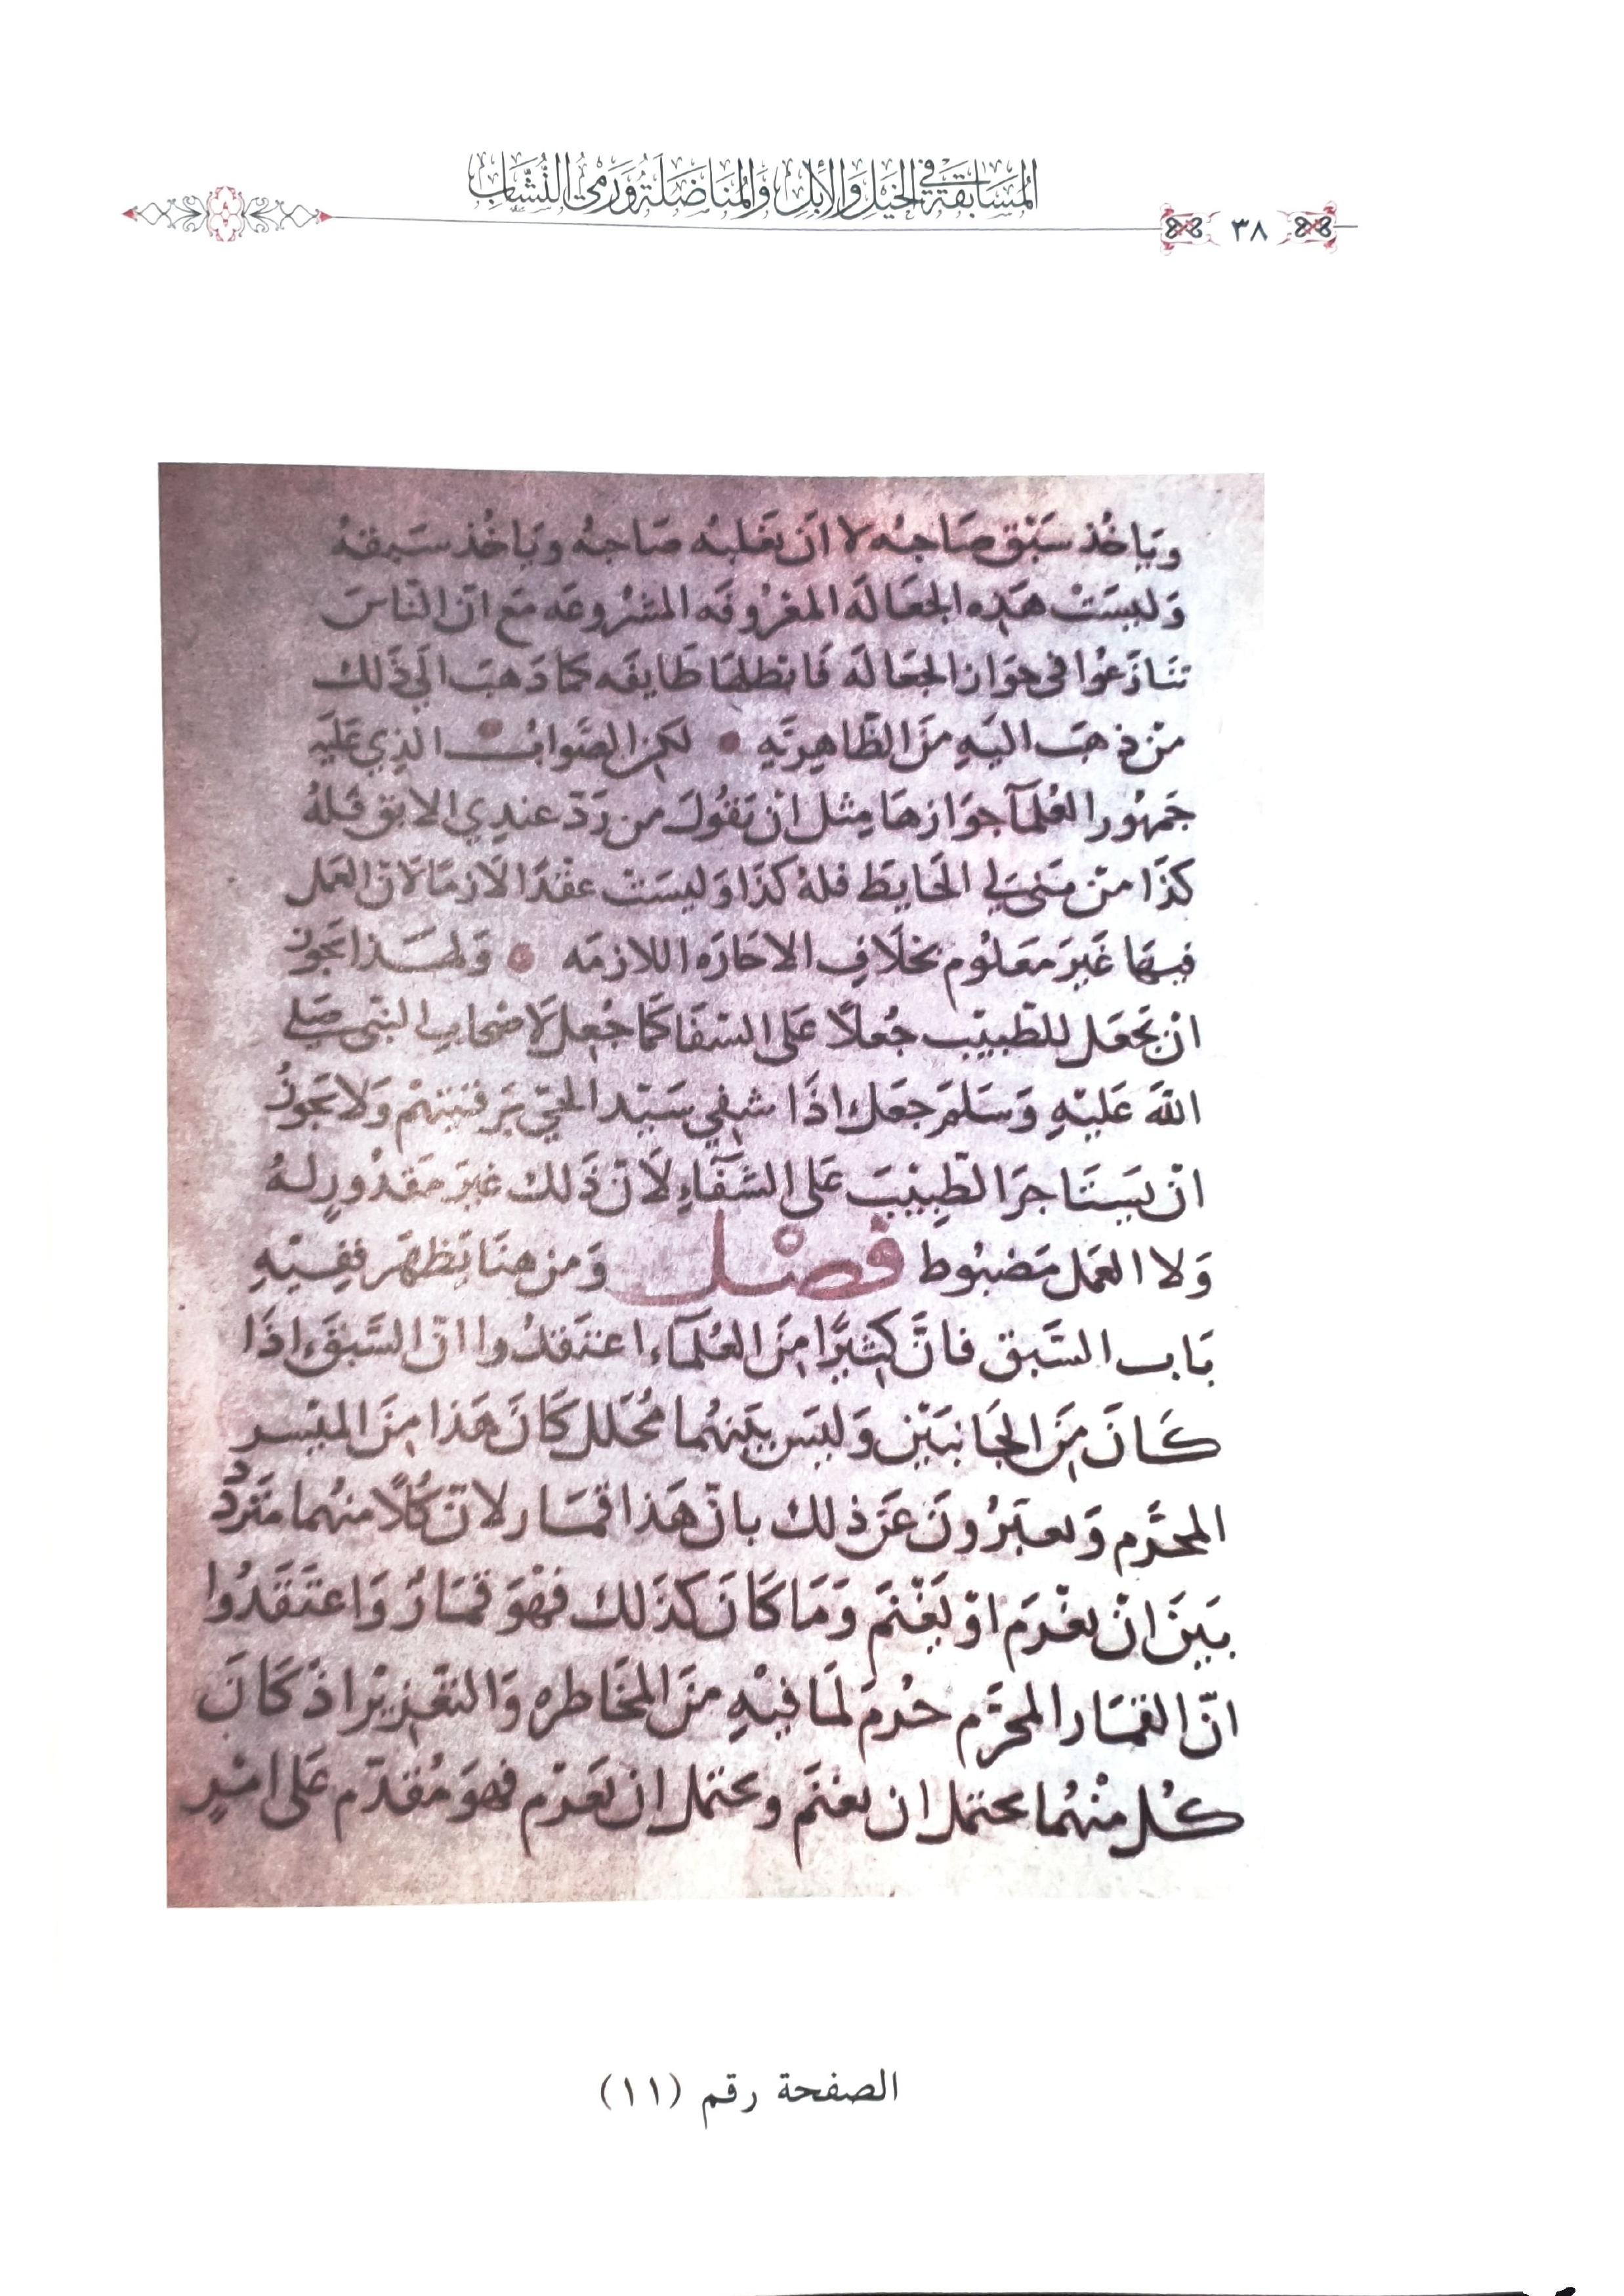 المُسَابَقَة فِي الخَيْلِ وَالإِبِلِ وَالمُنَاضَلَة وَرَمْي النُّشَّاب
٣٨
وياخُذ سَبْق صَاحبُه لا ان يَغلبُه صَاحبُه وَياخُذ سَبقهُ
وَليسَتْ هَذِه الجعَالَه المعْرُوفَه المشرُوعَه مَع انّ النّاسَ
تنَازَعُوا في جوَاز الجعَالَه فَابْطلهَا طَايفَه كمَا ذَهبَ الَي ذَلك
مَنْ ذهبَ اليَهِ مِنَ الظّاهِريَّهِ لكِن الصَّوابُ الذِي عَليَهِ
جَمهُور العُلمآ جوَازهَا مِثل انْ يَقُولَ من رَدّ عندِي الابق فَلهُ
كذَا منْ بَنى لي الحَايِط فلهُ كذَا وَليسَتْ عقْدًا لازمًا لانّ العَمل
فيهَا غَيرَ مَعلُوم بخلَافِ الاجَارَه اللازمَه وَلهَذا يَجوز
انْ يَجعَل للطّبيْب جُعلًا عَلى الشفَا كمَا جُعِل لَاصْحابِ النّبي صَلي
اللهَ عَليْهِ وَسَلمَ جعَل اذَا شفِي سَيّد الحيّ بَرقيَتهمْ وَلا يَجوزُ
انْ يَستَاجرَ الطّبِيْبَ عَلى الشّفَاءِ لَانّ ذَلك غيرَ مَقدُورٍ لهُ
وَلا العَمل مَضبُوط فصْل وَمن هنَا يَظهَر ففِيْهِ
بَاب السَّبق فانَّ كثِيرًا مِنَ العُلمَآء اعتَقدُوا انّ السَّبْقَ اذَا
كَانَ مِنَ الجَانبَيْنِ وَليسَ بيَنهُما مُحَلل كَانَ هَذا مِنَ الميْسر
المحرَّم وَيعبّرُونَ عَنْ ذلك بانّ هَذا قمَار لانّ كُلًا منهُما مَترَددٌ
بيَنَ انْ يغْرَم اوْ يَغْنمَ وَمَا كَانَ كذَلك فهْوَ قمَارٌ وَاعتَقَدُوا
انّ القمَار المحرَّم حُرمَ لمَا فيْهِ منَ المخَاطره وَالتغْرير اذ كَانَ
كُل منْهُما يحتمل ان يغنمَ ويحتمل ان يَغرَم فهوَ مُقدّم عَلى امْرٍ
الصفحة رقم (١١)